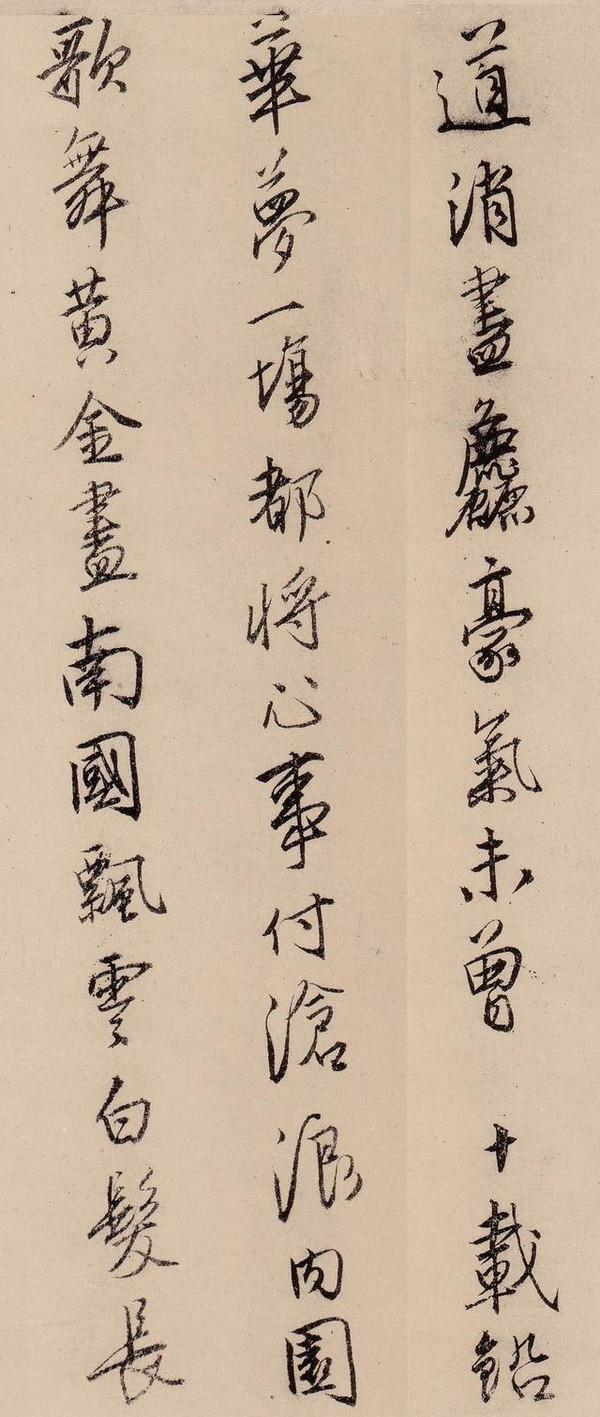 道消盡麤豪氣未曾 十載鉛
華夢一場都將心事付滄浪內園
歌舞黃金盡南國飄零白髮長